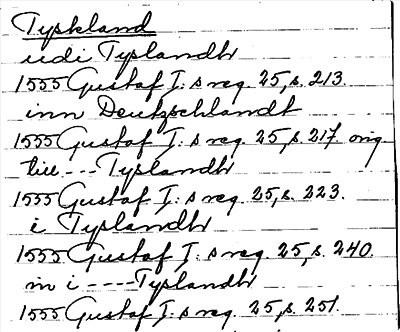 Tyskland
udi Tyslandh
1555 Gustaf I:s reg. 25, s. 213.
inn Deutzschlandt
1555 Gustaf I:s reg. 25, s. 217. orig.
till --- Tyslandh
1555 Gustaf I:s reg. 25, s. 223.
i Tyslandh
1555 Gustaf I:s reg. 25, s. 240.
in i ---- Tyslandh
1555 Gustaf I:s reg. 25, s. 251.